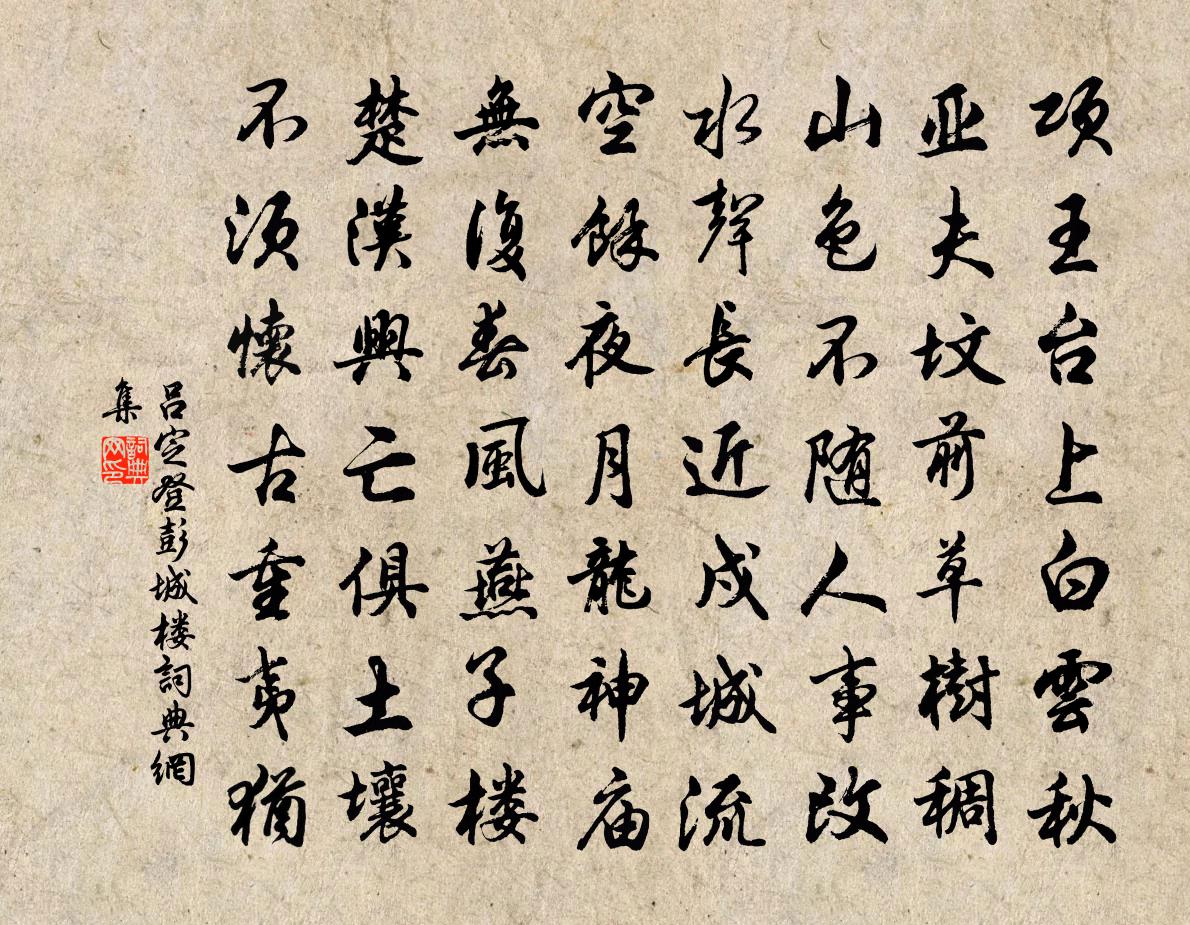 项王台上白雲秋
亚夫坟前草樹稠
山色不随人事改
水聲長近戍城流
空餘夜月龍神庙
無復春風燕子楼
楚漢興亡俱土壤
不须懷古重夷猶
吕定登彭城楼詞典網
集
詞典网印